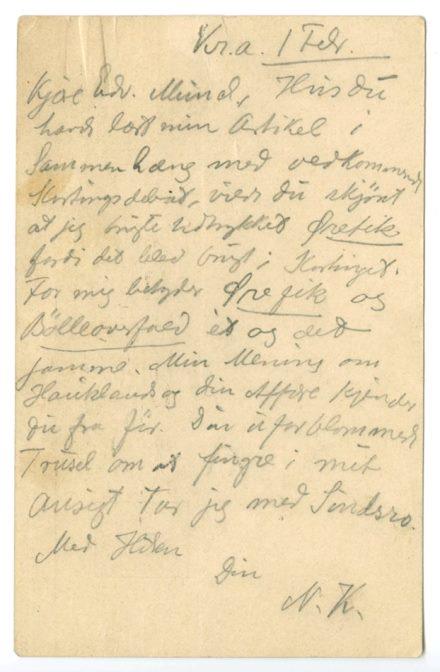 Kr.a. 1 Febr.
Kjære Edv. Munch, Hvis du
havde læst min Artikel i
Sammenhæng med vedkommende
Stortingsdebat, vilde du skjønt
at jeg brugte Udtrykket Ørefik
fordi det blev brugt i Stortinget.
For mig betyder Ørefik og
Bølleoverfald et og det
samme. Min Mening om
Hauklands og din Affære kjender
du fra før. Din uforblommede
Trusel om at fingre i mit
Ansigt tar jeg med Sindsro.
Med Hilsen
Din
N. K.